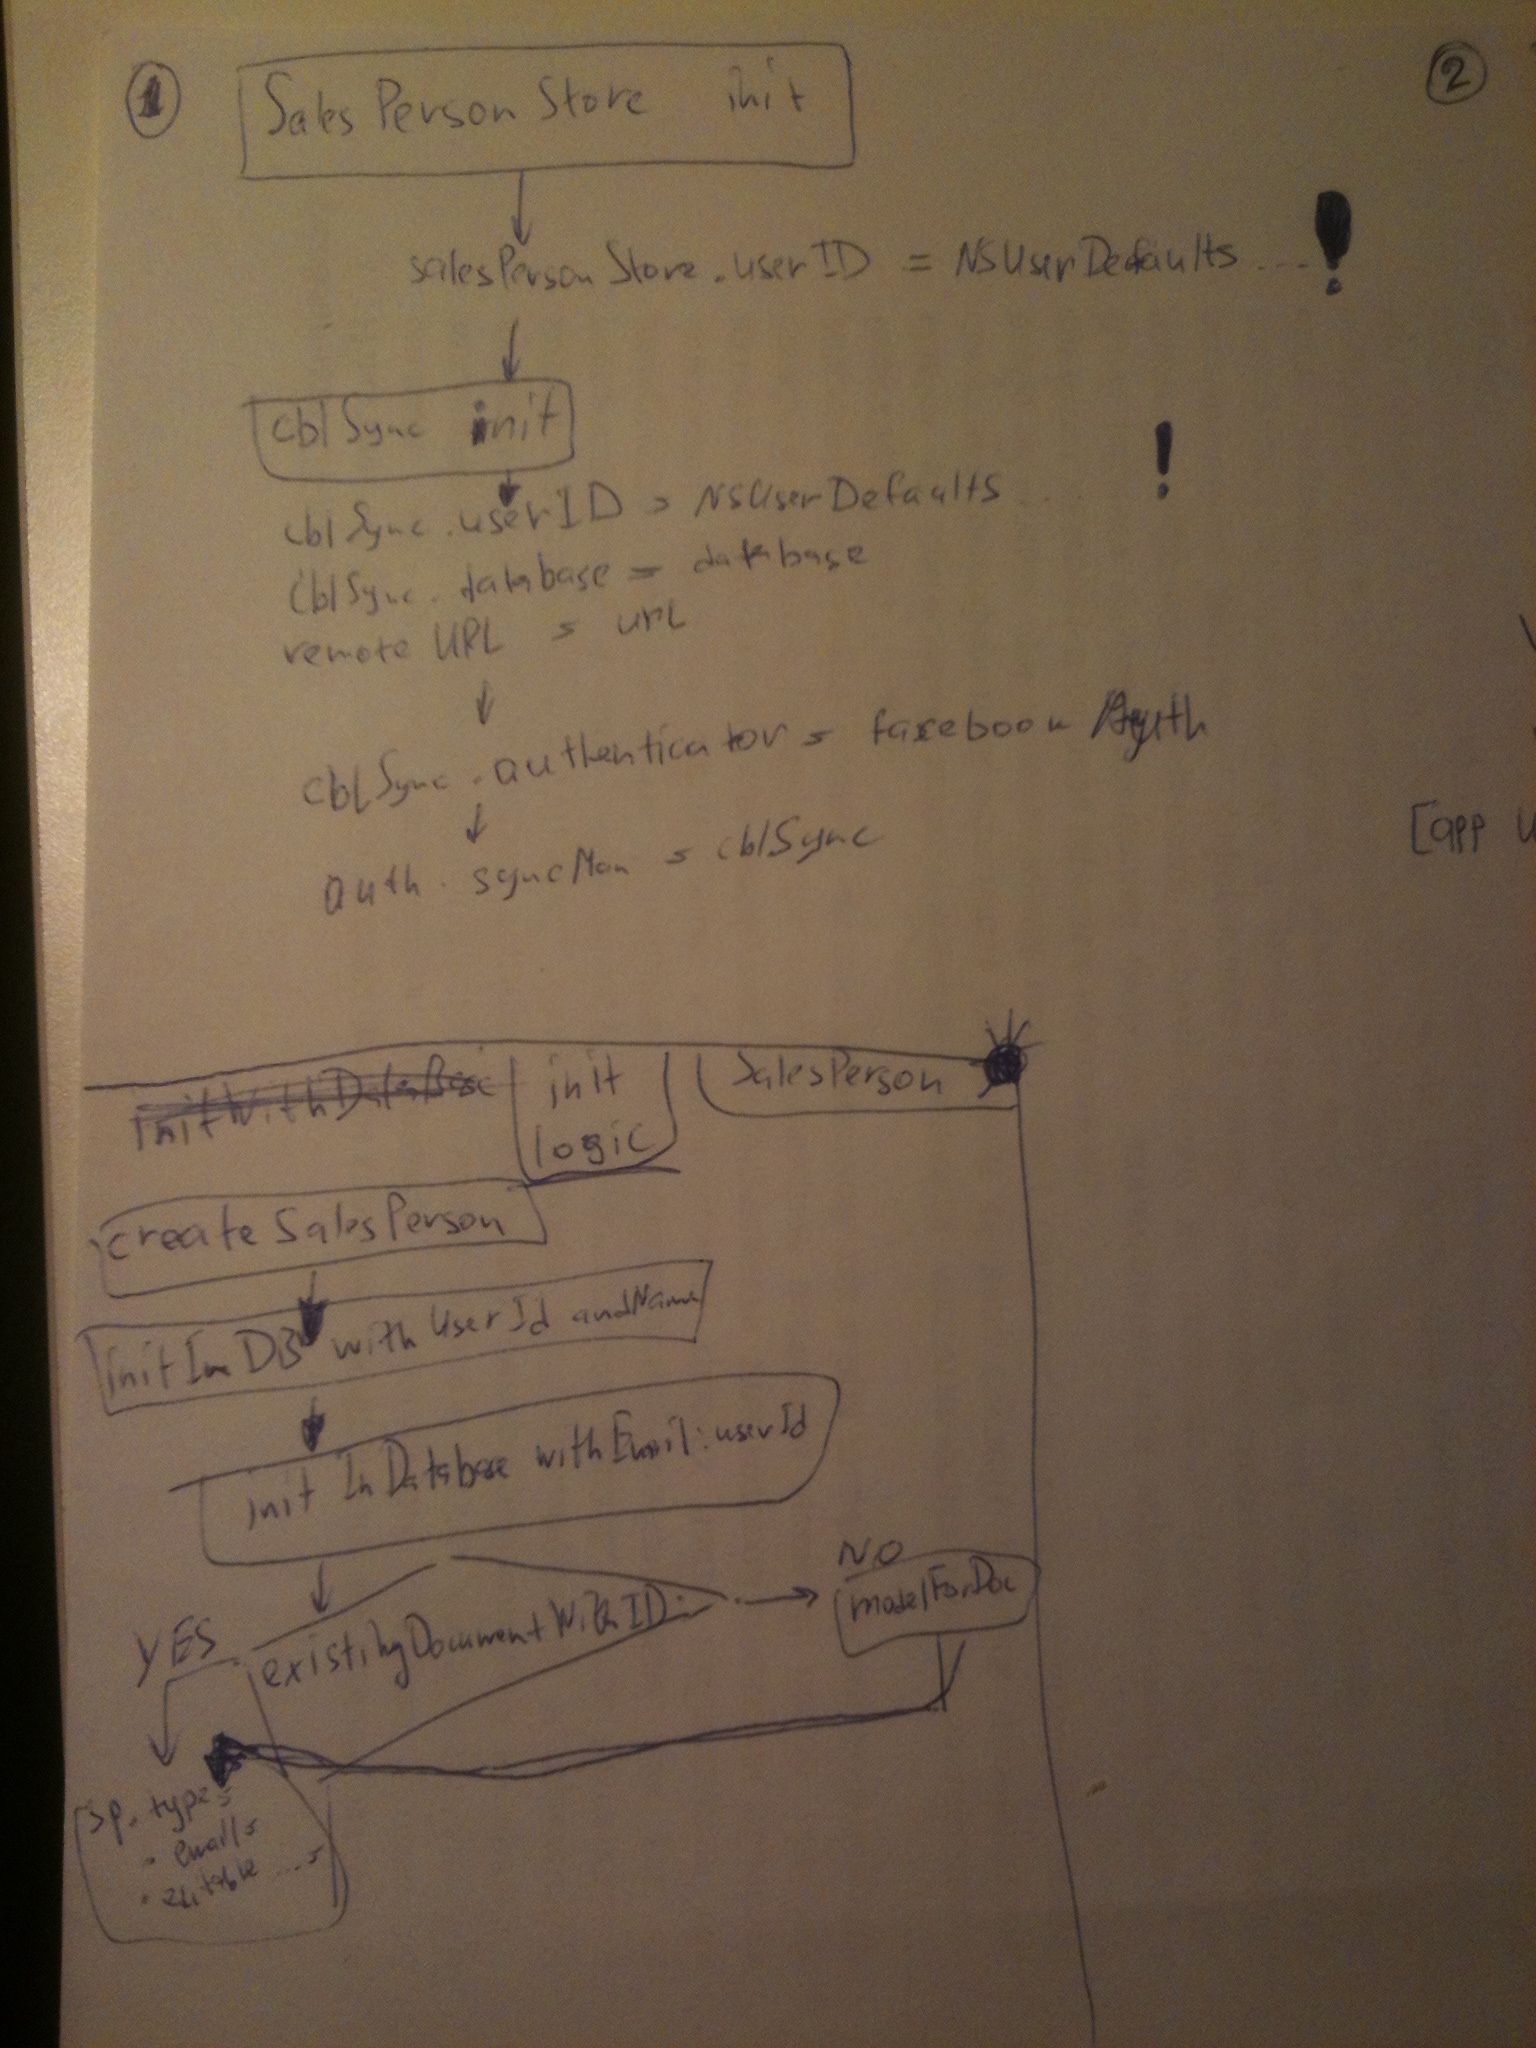 1
SalesPersonStore init
2
salesPersonStore.userID = NSUserDefaults ... !
cblSync init
!
cblSync.userID = NSUserDefaults ...
cblSync.database = database
remote URL = url
cblSync.authenticator = facebook Auth
auth.syncMan = cblSync
[app
initWithDataBase
init
logic
SalesPerson
createSalesPerson
initInDB with UserId andName
init InDatabase withEmail:userId
NO
modelForDoc
existingDocumentWithID:
YES
sp.type=
. email=
. editable ... =